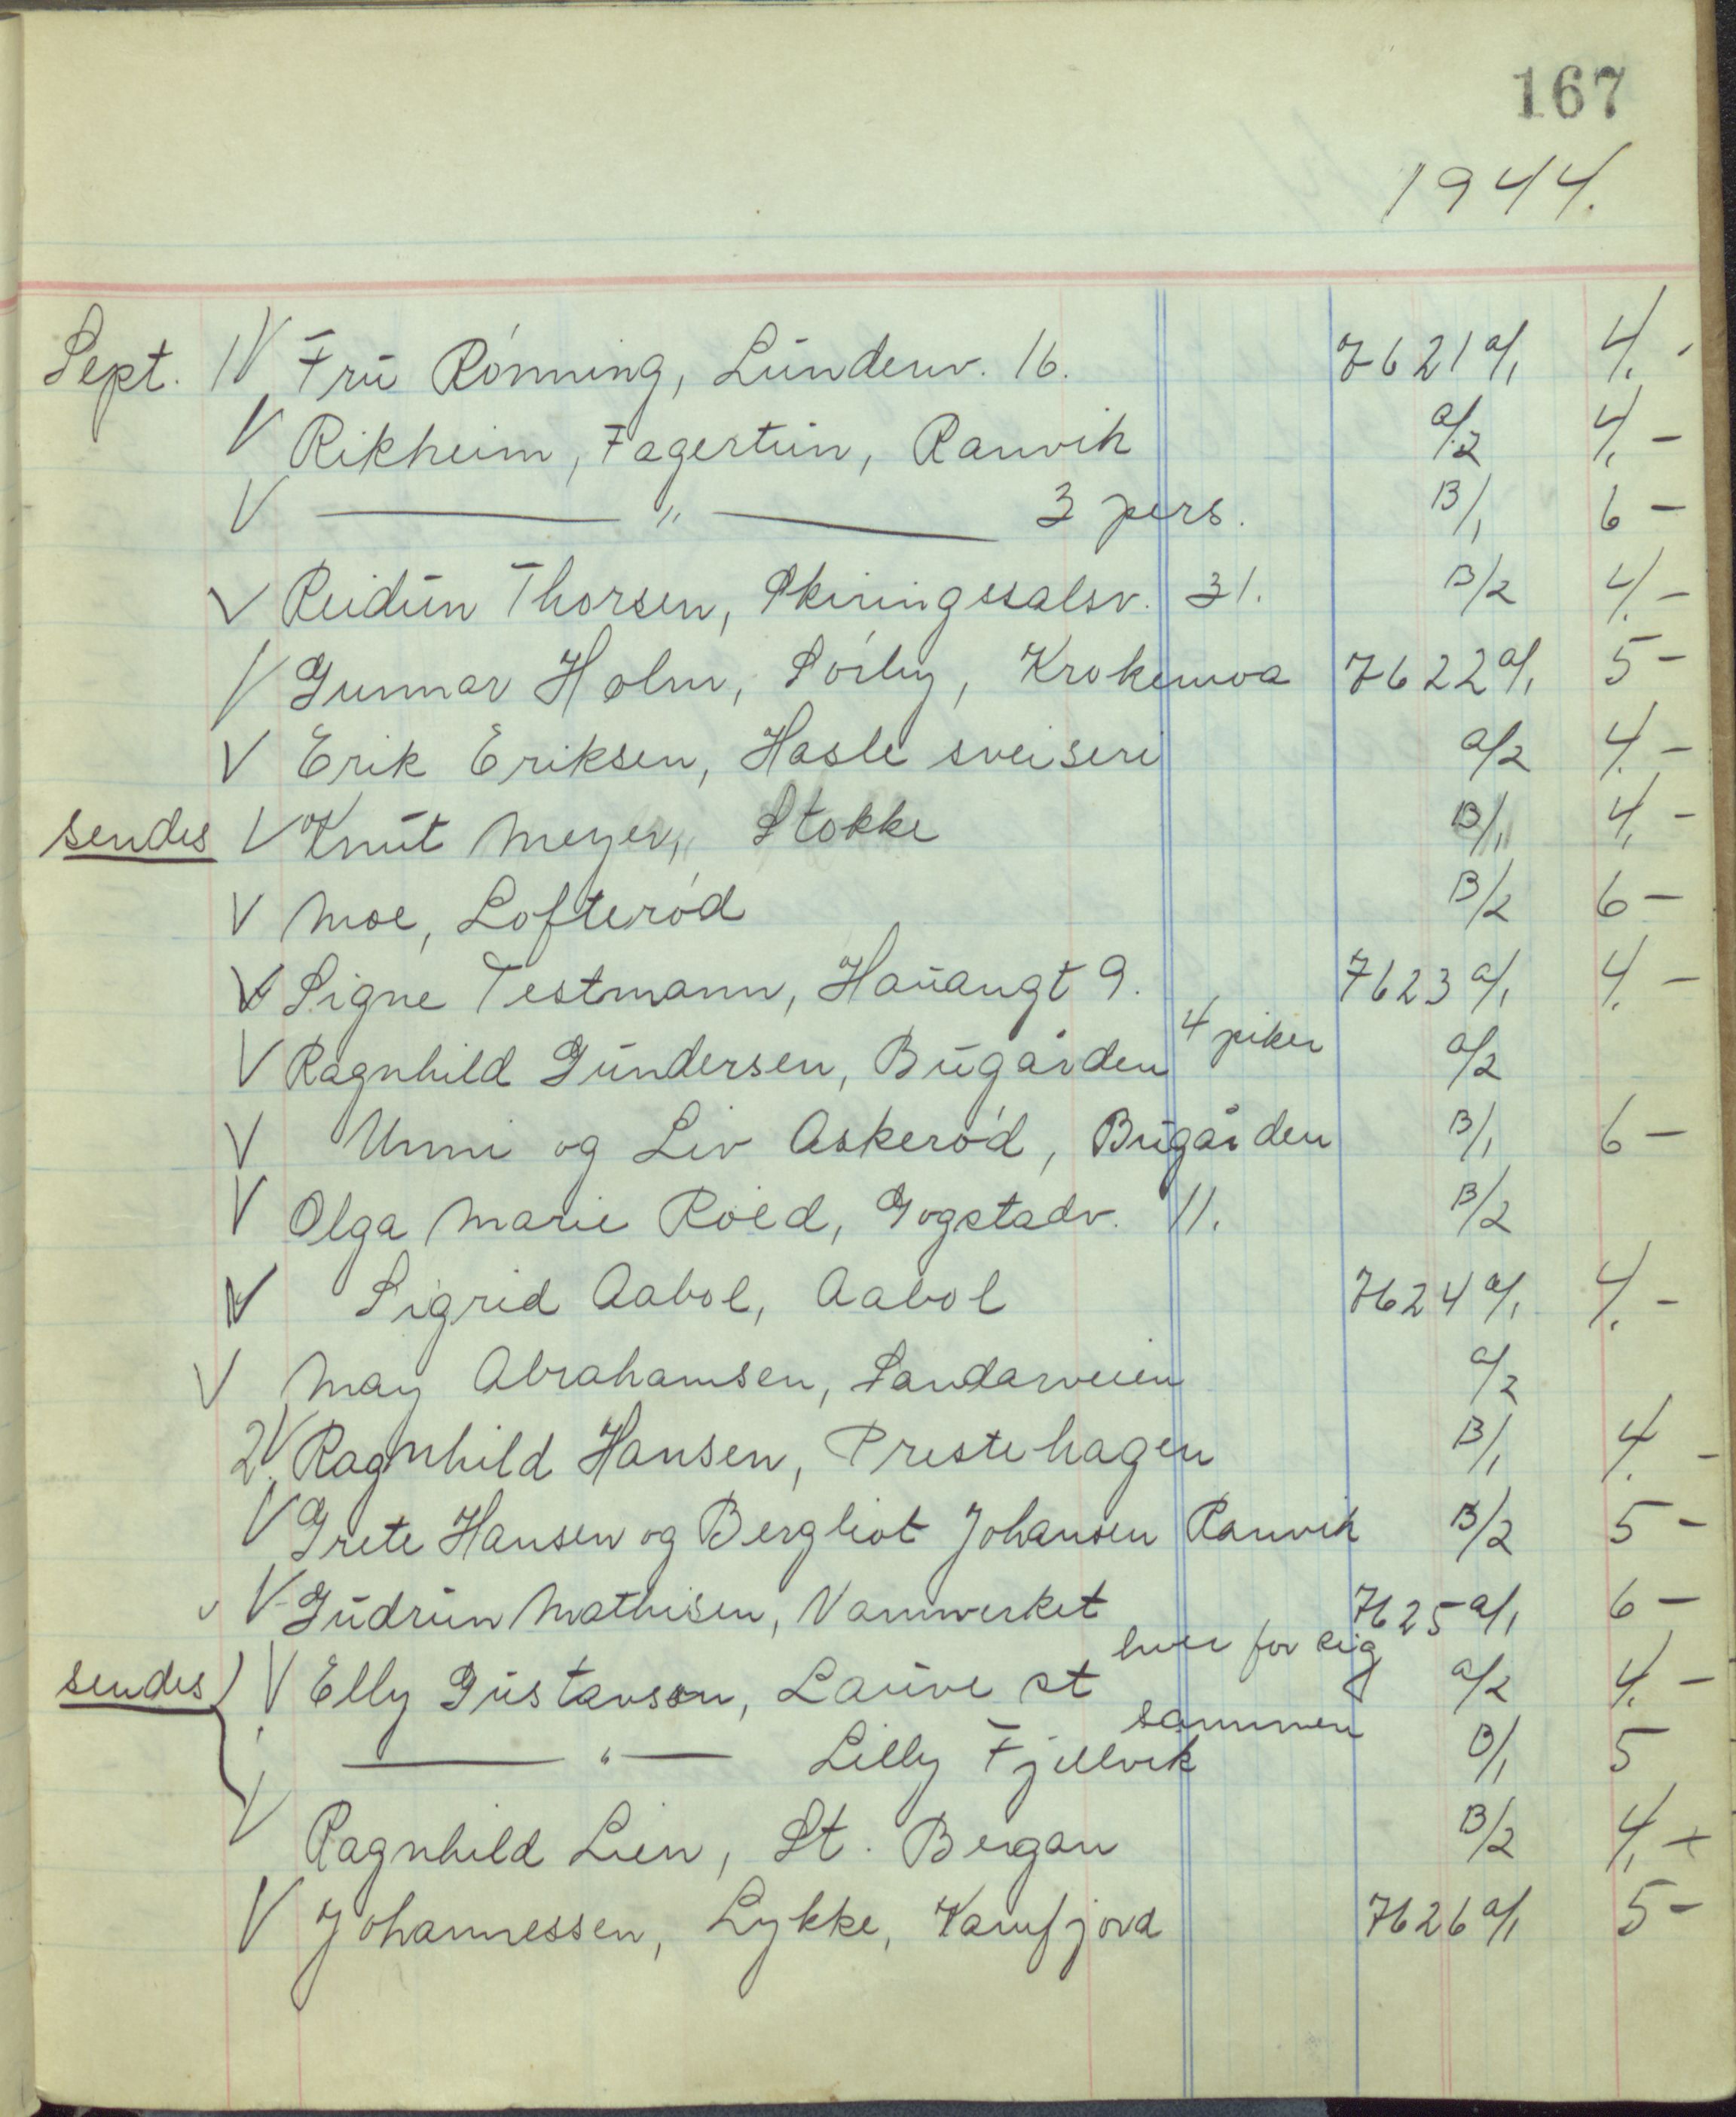 167
1944.
Sept. 1 V Fru Rønning, Lundenv. 16. 7621 a/1 4.-
V Rikheim, Fagertun, Ranvik a/2 4,-
V — " — 3 pers. B/1 6 -
V Reidun Thorsen, Skiringssalsv. 31. B/2 4.-
V Gunnar Holm, Sörby, Krokemoa 7622 a/1 5 -
V Erik Eriksen, Hasle sveiseri a/2 4.-
sendes V Knut Meyer, Stokke B/1 4,-
V Moe, Lofterød B/2 6 -
V Signe Testmann, Hauangt 9. 7623 a/1 4.-
V Ragnhild Gundersen, Bugården 4 piker a/2
V Unni og Liv Askerød, Bugården B/1 6 -
V Olga Marie Röed, Gogstadv. 11. B/2
V Sigrid Aabol, Aabol 7624 a/1 4.-
V May Abrahamsen, Sandarveien a/2
2. V Ragnhild Hansen, Prestehagen B/1 4.-
V Grete Hansen og Bergliot Johansen Ranvik B/2 5 -
V Gudrun Mathisen, Vannverket 7625 a/1 6 -
sendes V Elly Gustavson, Lauve st hver for sig a/2 4.-
— " — Lilly Fjellvik sammen B/1 5
V Ragnhild Lien, St. Bergan B/2 4,-
V Johannessen, Lykke, Kamfjord 7626 a/1 5 -